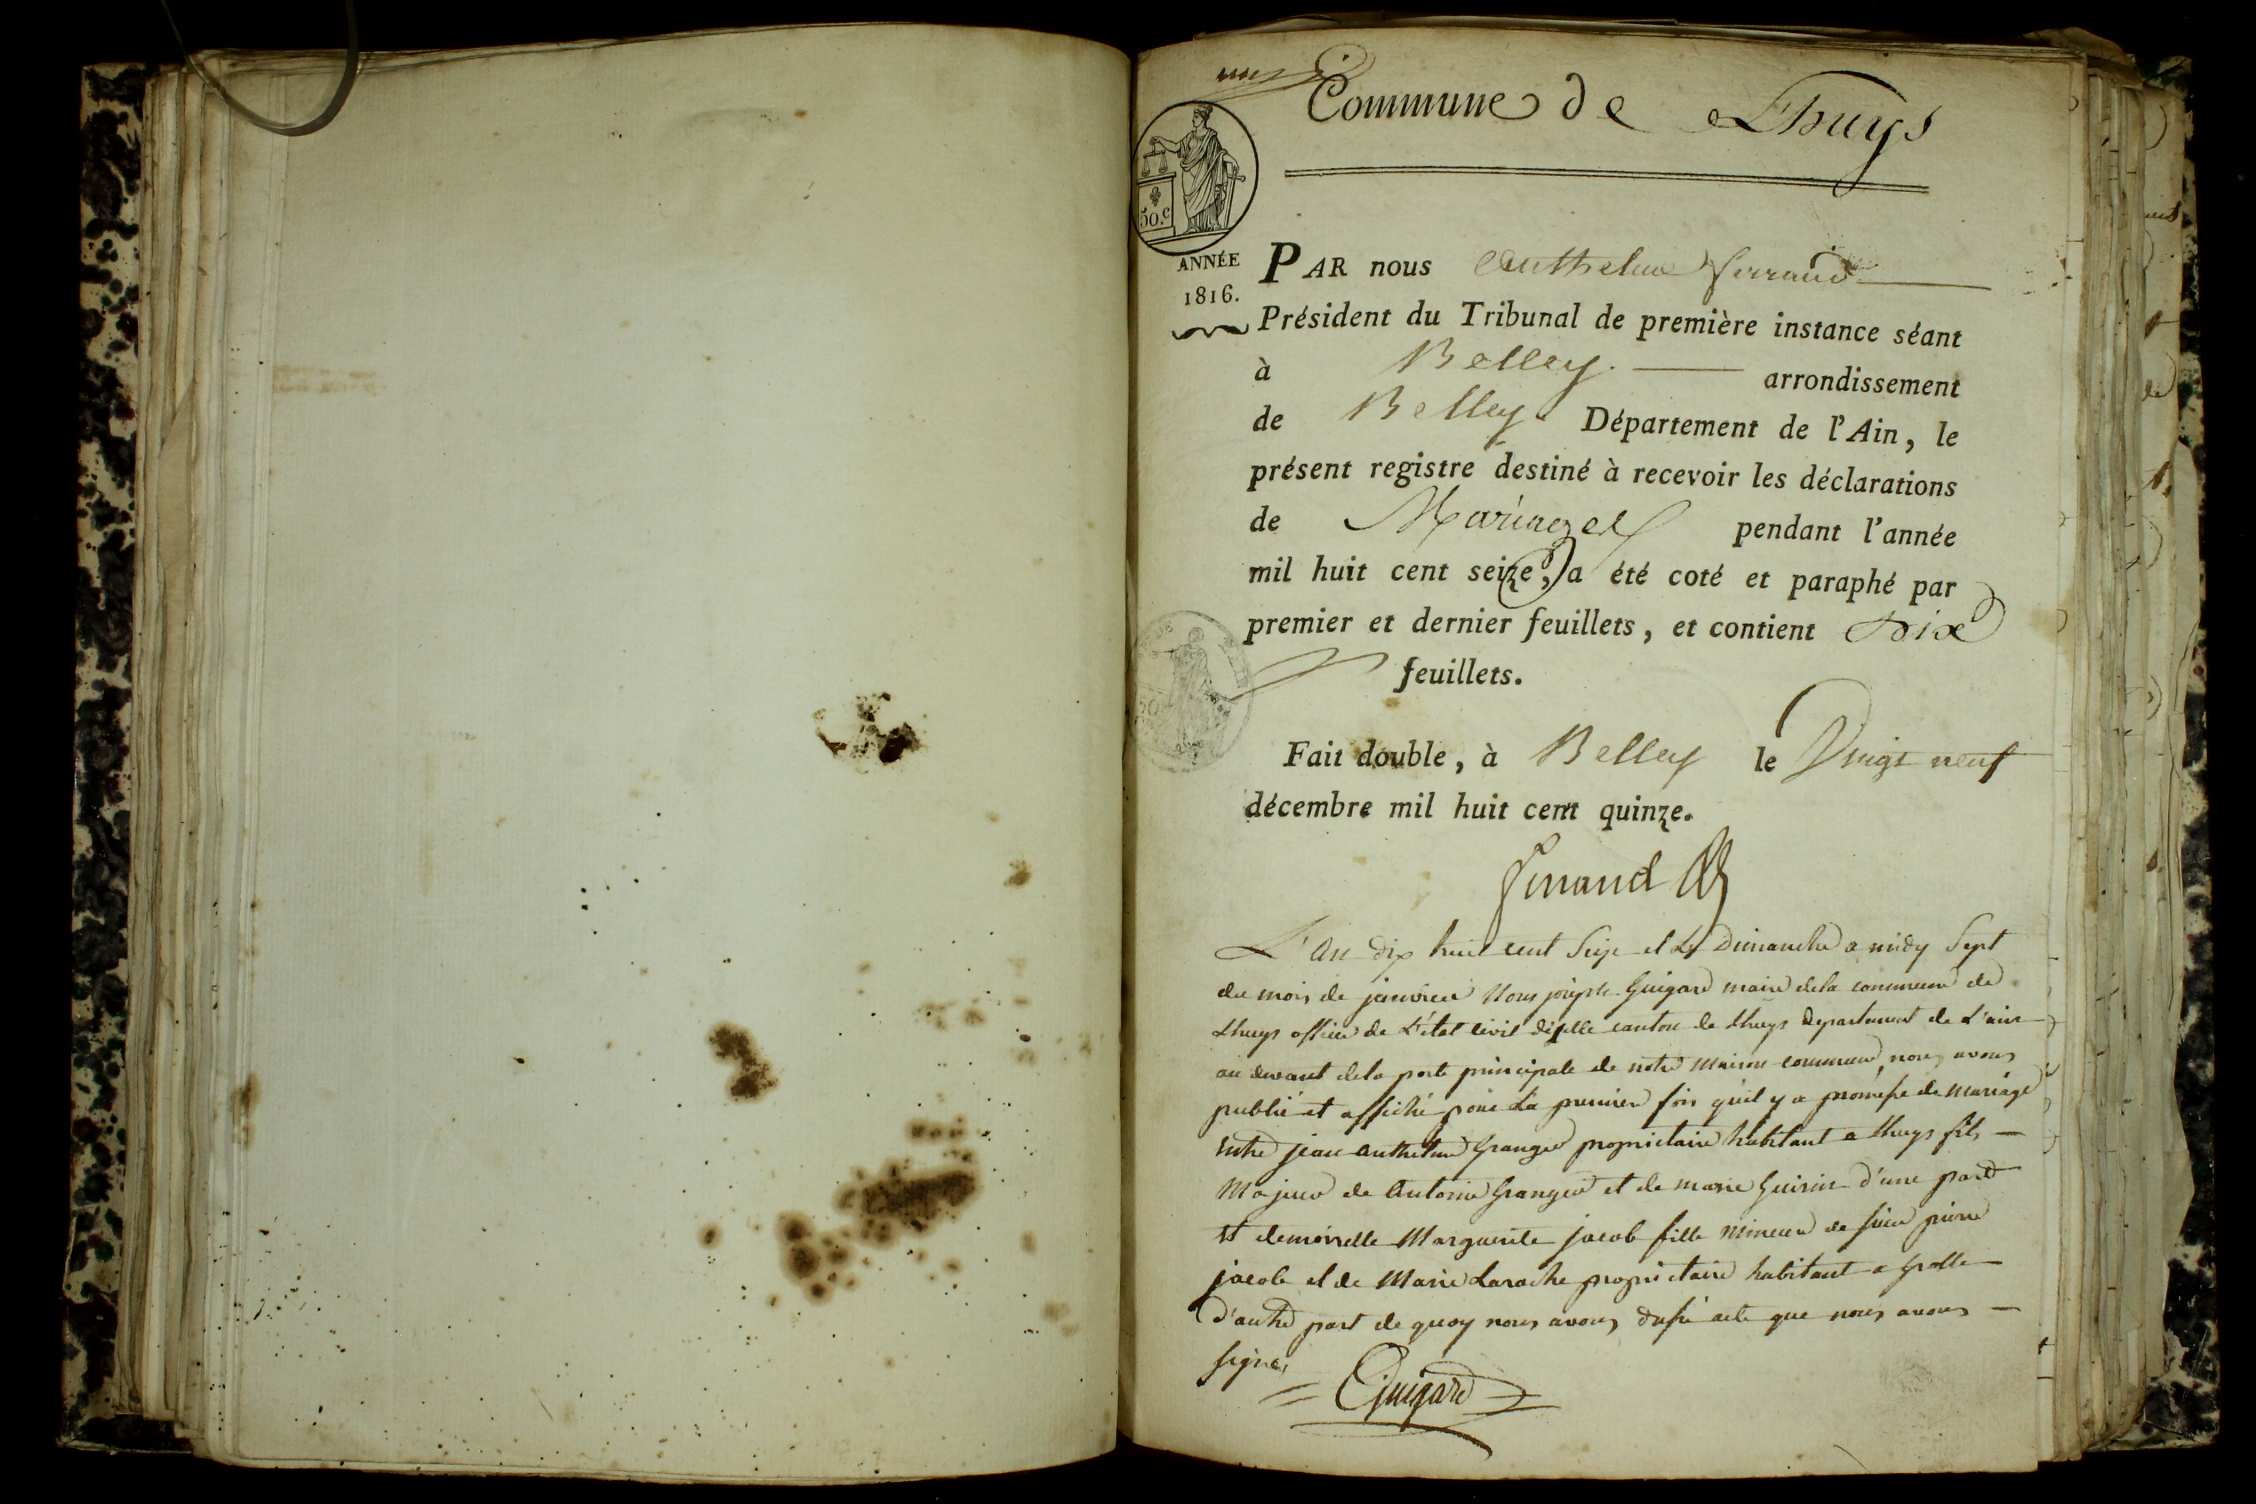 Commune de Lhuys
50.c
ANNÉE
1816.
PAR nous Anthelme ferrand
Président du Tribunal de première instance séant
à Belley. arrondissement
de Belley. Département de l'Ain, le
présent registre destiné à recevoir les déclarations
de Mariages pendant l'année
mil huit cent seize, a été coté et paraphé par
premier et dernier feuillets, et contient Dix
feuillets.
Fait double, à Belley le Vingt neuf
décembre mil huit cent quinze.
ferrand
L'an dix huit cent Seize et Le Dimanche a midy Sept
du mois de janvier Nous joseph Guigard maire dela commune de
Lhuys officier de L'état civil d'icelle canton de Lhuys Departement de L'ain
au devant dela porte principale de notre maison commune, nous avons
publié et affiché pour La premiere fois qu'il y a promesse de mariage
Entre jean anthelme Granger propriétaire habitant a Lhuys fils
Majeur de Antoine Granger et de marie Guirin d'une part
Et demoiselle Marguerite jacob fille mineure de feu pierre
jacob et de Marie Laroche propriétaire habitant a
D'autre part de quoy nous avons acte que nous avons
signe,
Guigard